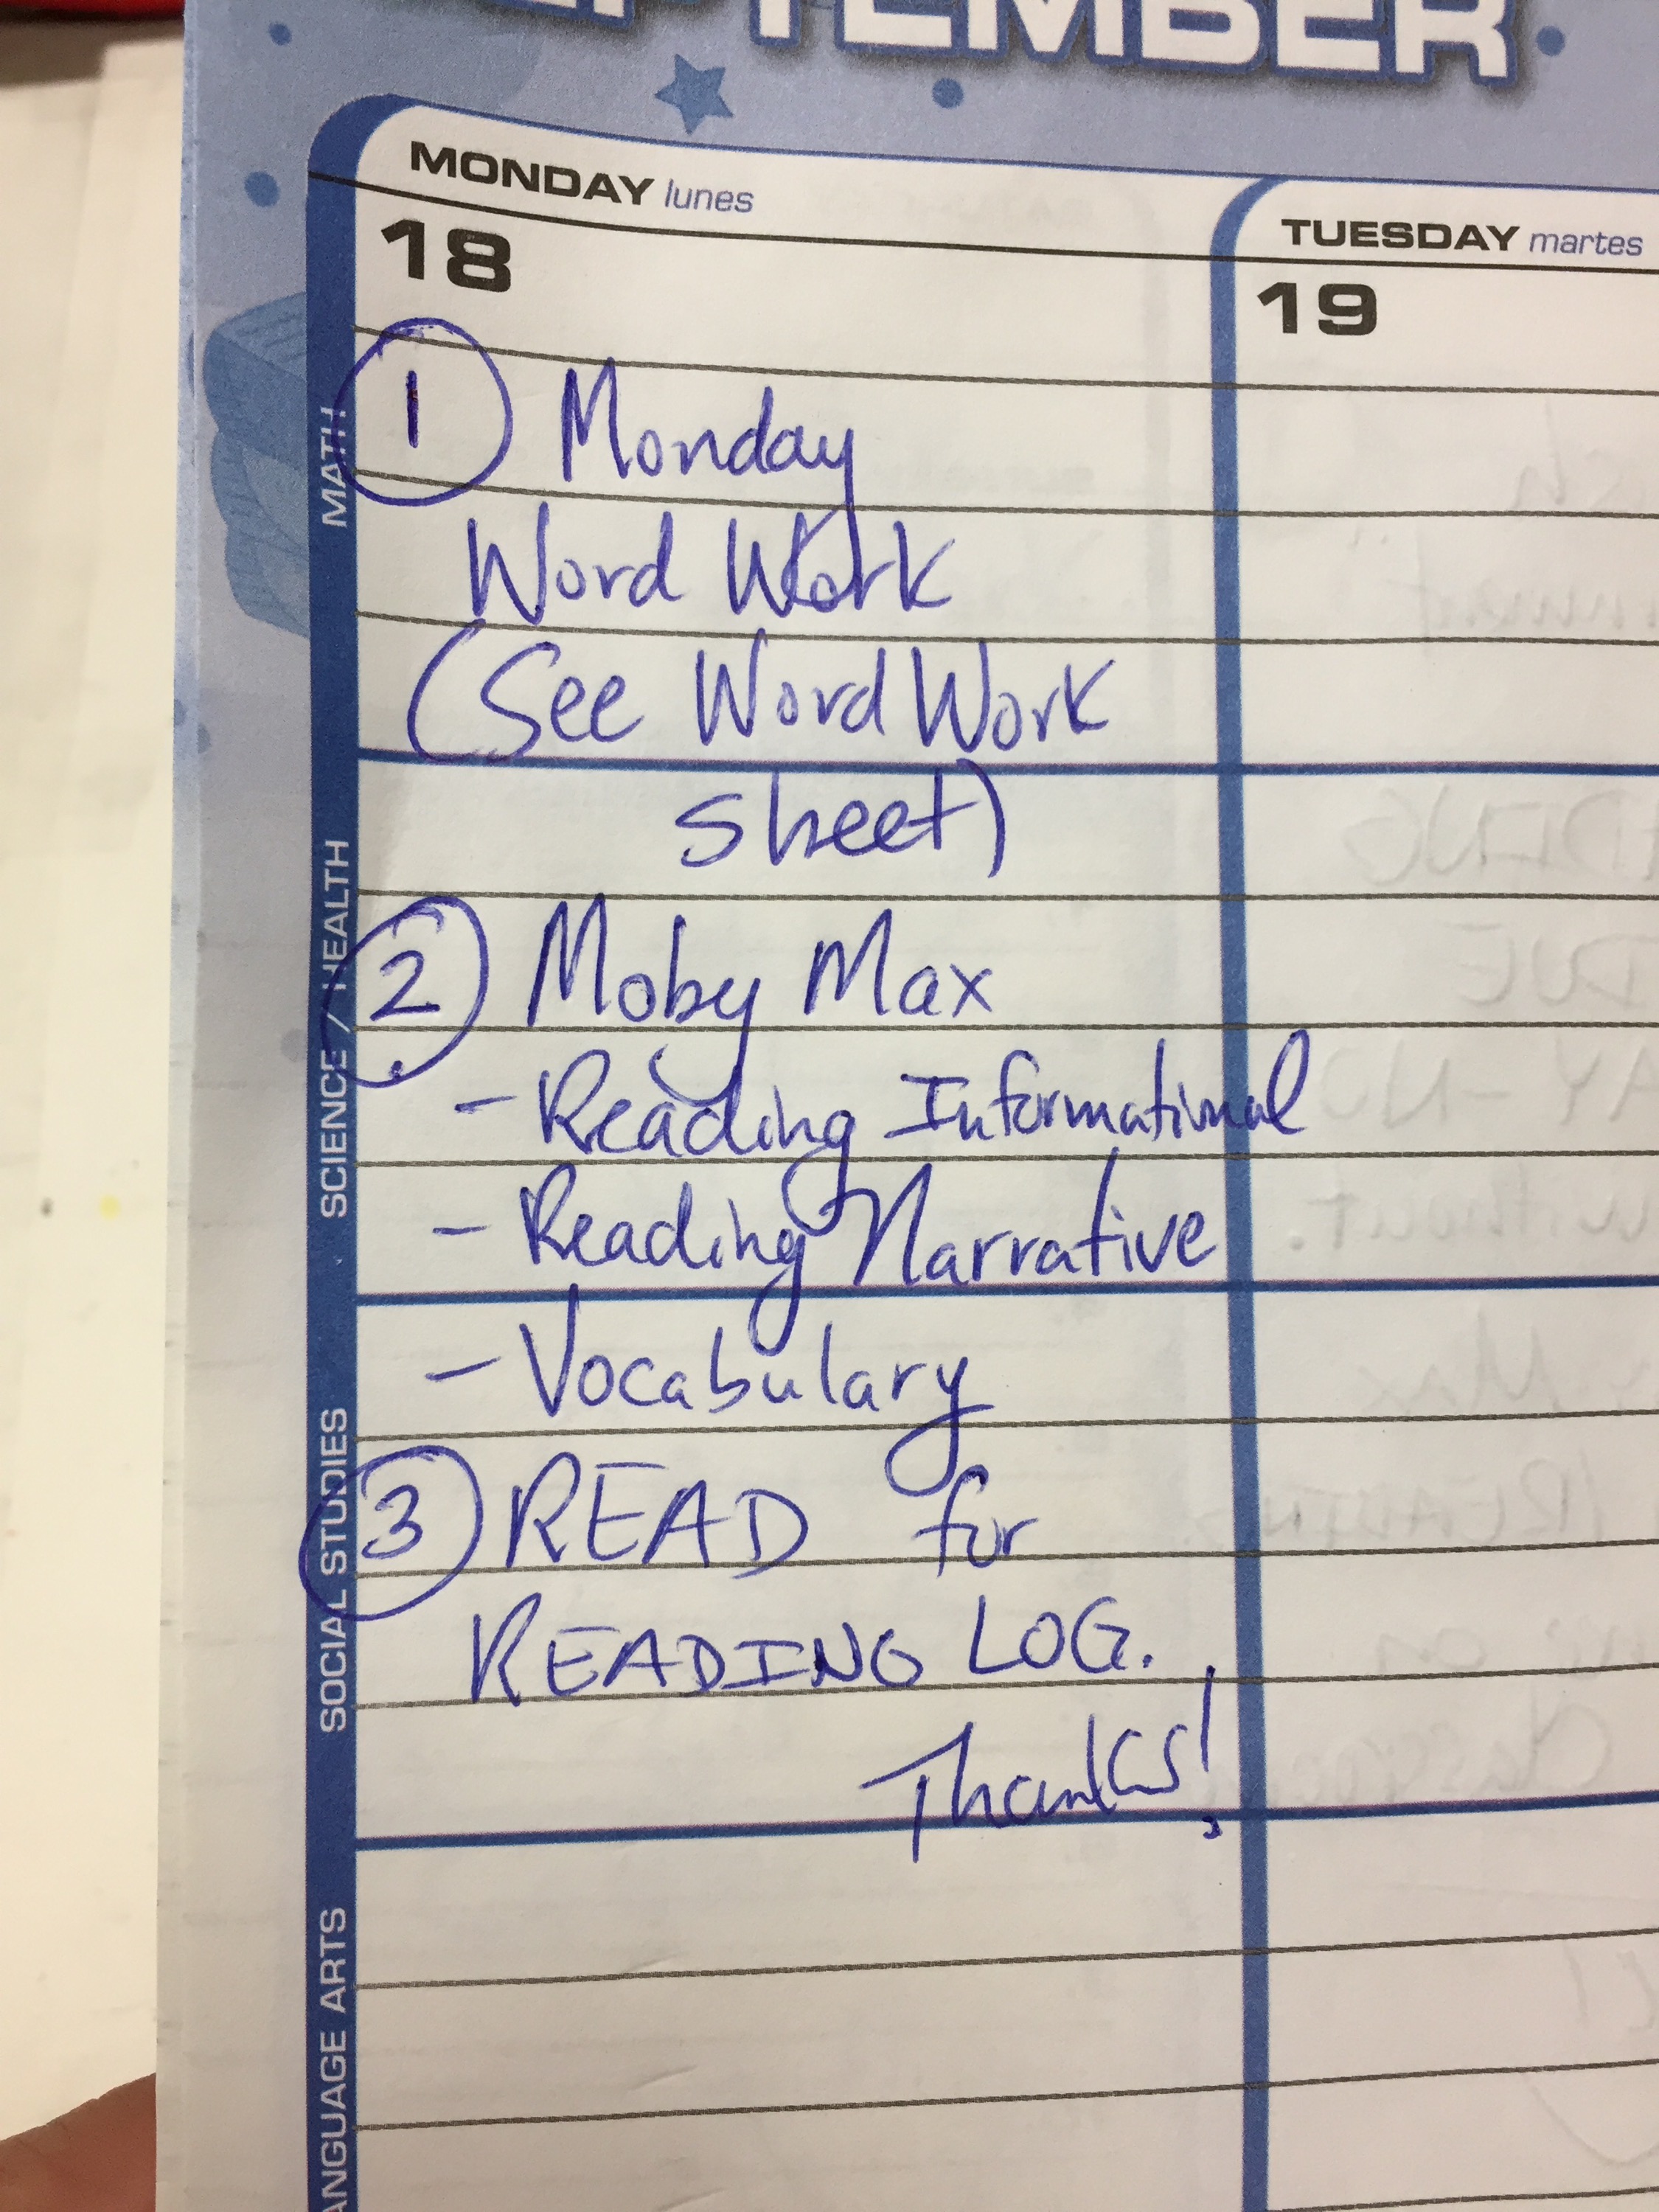 SEPTEMBER
MONDAY lunes
TUESDAY martes
18
19
MATH
① Monday
Word Work
(See Word Work
sheet)
SCIENCE / HEALTH
② Moby Max
- Reading Informational
- Reading Narrative
SOCIAL STUDIES
- Vocabulary
③ READ for
READING LOG.
Thanks!
LANGUAGE ARTS